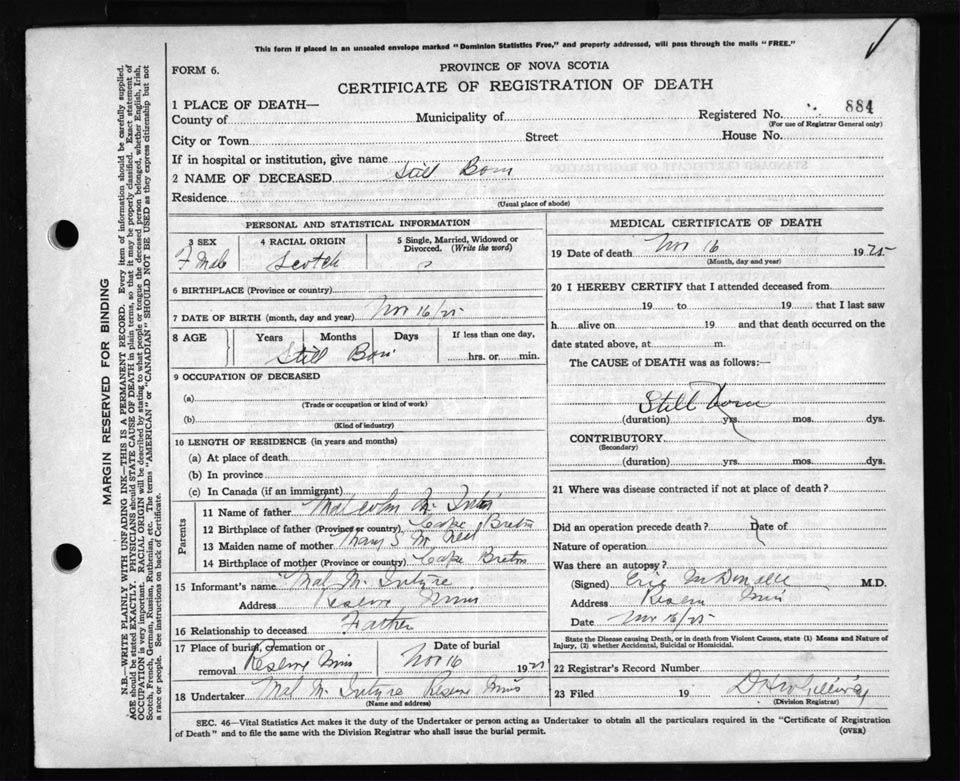 This form if placed in an unsealed envelope marked "Dominion Statistics Free," and properly addressed, will pass through the mails "FREE."
FORM 6.
PROVINCE OF NOVA SCOTIA
CERTIFICATE OF REGISTRATION OF DEATH
1 PLACE OF DEATH—
Registered No. 884
County of Municipality of
(For use of Registrar General only)
City or Town Street House No.
If in hospital or institution, give name
2 NAME OF DECEASED Still Born
Residence
(Usual place of abode)
PERSONAL AND STATISTICAL INFORMATION
3 SEX 4 RACIAL ORIGIN 5 Single, Married, Widowed or Divorced. (Write the word)
F Male Scotch
6 BIRTHPLACE (Province or country)
7 DATE OF BIRTH (month, day and year) Nov 16/25
8 AGE Years Months Days If less than one day,
Still Born hrs. or min.
9 OCCUPATION OF DECEASED
(a)
(Trade or occupation or kind of work)
(b)
(Kind of industry)
10 LENGTH OF RESIDENCE (in years and months)
(a) At place of death
(b) In province
(c) In Canada (if an immigrant)
Parents
11 Name of father Malcolm Mc Intyre
12 Birthplace of father (Province or country) Cape Breton
13 Maiden name of mother Mary S Mc Neil
14 Birthplace of mother (Province or country) Cape Breton
15 Informant's name Mal Mc Intyre
Address Reserve Mines
16 Relationship to deceased Father
17 Place of burial, cremation or removal Reserve Mines
Date of burial Nov 16 1925
18 Undertaker Mal Mc Intyre Reserve Mines
(Name and address)
MEDICAL CERTIFICATE OF DEATH
19 Date of death Nov 16 1925
(Month, day and year)
20 I HEREBY CERTIFY that I attended deceased from
19 to 19 that I last saw
h alive on 19 and that death occurred on the
date stated above, at m.
The CAUSE of DEATH was as follows:—
Still born
(duration) yrs. mos. dys.
CONTRIBUTORY
(Secondary)
(duration) yrs. mos. dys.
21 Where was disease contracted if not at place of death?
Did an operation precede death? Date of
Nature of operation
Was there an autopsy?
(Signed) Eric McDonald M.D.
Address Reserve Mines
Date Nov 16/25
State the Disease causing Death, or in death from Violent Causes, state (1) Means and Nature of
Injury, (2) whether Accidental, Suicidal or Homicidal.
22 Registrar's Record Number
23 Filed 19
(Division Registrar)
SEC. 46—Vital Statistics Act makes it the duty of the Undertaker or person acting as Undertaker to obtain all the particulars required in the "Certificate of Registration
of Death" and to file the same with the Division Registrar who shall issue the burial permit.
(OVER)
MARGIN RESERVED FOR BINDING
N.B.—WRITE PLAINLY WITH UNFADING INK—THIS IS A PERMANENT RECORD. Every item of information should be carefully supplied.
AGE should be stated EXACTLY. PHYSICIANS should STATE CAUSE OF DEATH in plain terms, so that it may be properly classified. Exact statement of
OCCUPATION is very important. RACIAL ORIGIN will be described by stating to what people or tongue the deceased person belonged, whether English, Irish,
Scotch, French, German, Russian, Ruthenian, etc. The terms "AMERICAN" or "CANADIAN" SHOULD NOT BE USED as they express citizenship but not
a race or people. See instructions on back of Certificate.